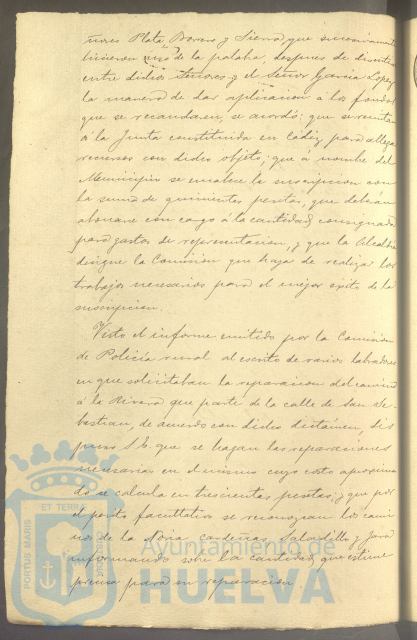 ñores Plata, Borrero y Sierra que sucesivamente
hicieron uso de la palabra, despues de discutir
entre dichos Señores y el Señor García Lopez
la manera de dar aplicacion á los fondos
que se recaudasen, se acordó: que se remitan
á la Junta constituida en Cádiz, para allegar
recursos con dicho objeto; que á nombre del
Municipio se encabece la suscripcion con
la suma de quinientas pesetas, que deberán
abonarse con cargo á la cantidad consignada
para gastos de representacion, y que la Alcaldia
designe la Comision que haya de realizar los
trabajos necesarios para el mejor exito de la
suscripcion.
Visto el informe emitido por la Comision
de Policia rural al escrito de varios labradores
en que solicitaban la reparacion del camino
á la Rivera que parte de la calle de San Se-
bastian, de acuerdo con dicho dictámen, dis-
puso S. E. que se hagan las reparaciones
necesarias en el mismo cuyo costo aproxima-
do se calcula en trescientas pesetas; y que por
el perito facultativo se reconozcan los cami-
nos de la Noria, Cardeñas, Saladillo y
informando sobre la cantidad que estime
precisa para su reparacion
PORTUS MARIS
ET TERRE
CUSTODIA
Ayuntamiento de
HUELVA